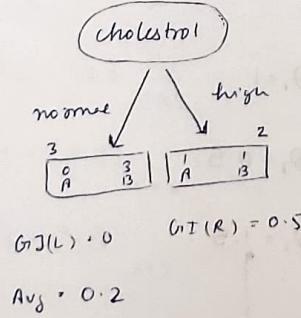 cholestrol
normal
high
3
2
0 3
A B
1 1
A B
GI(L) = 0
GI(R) = 0.5
Avg = 0.2